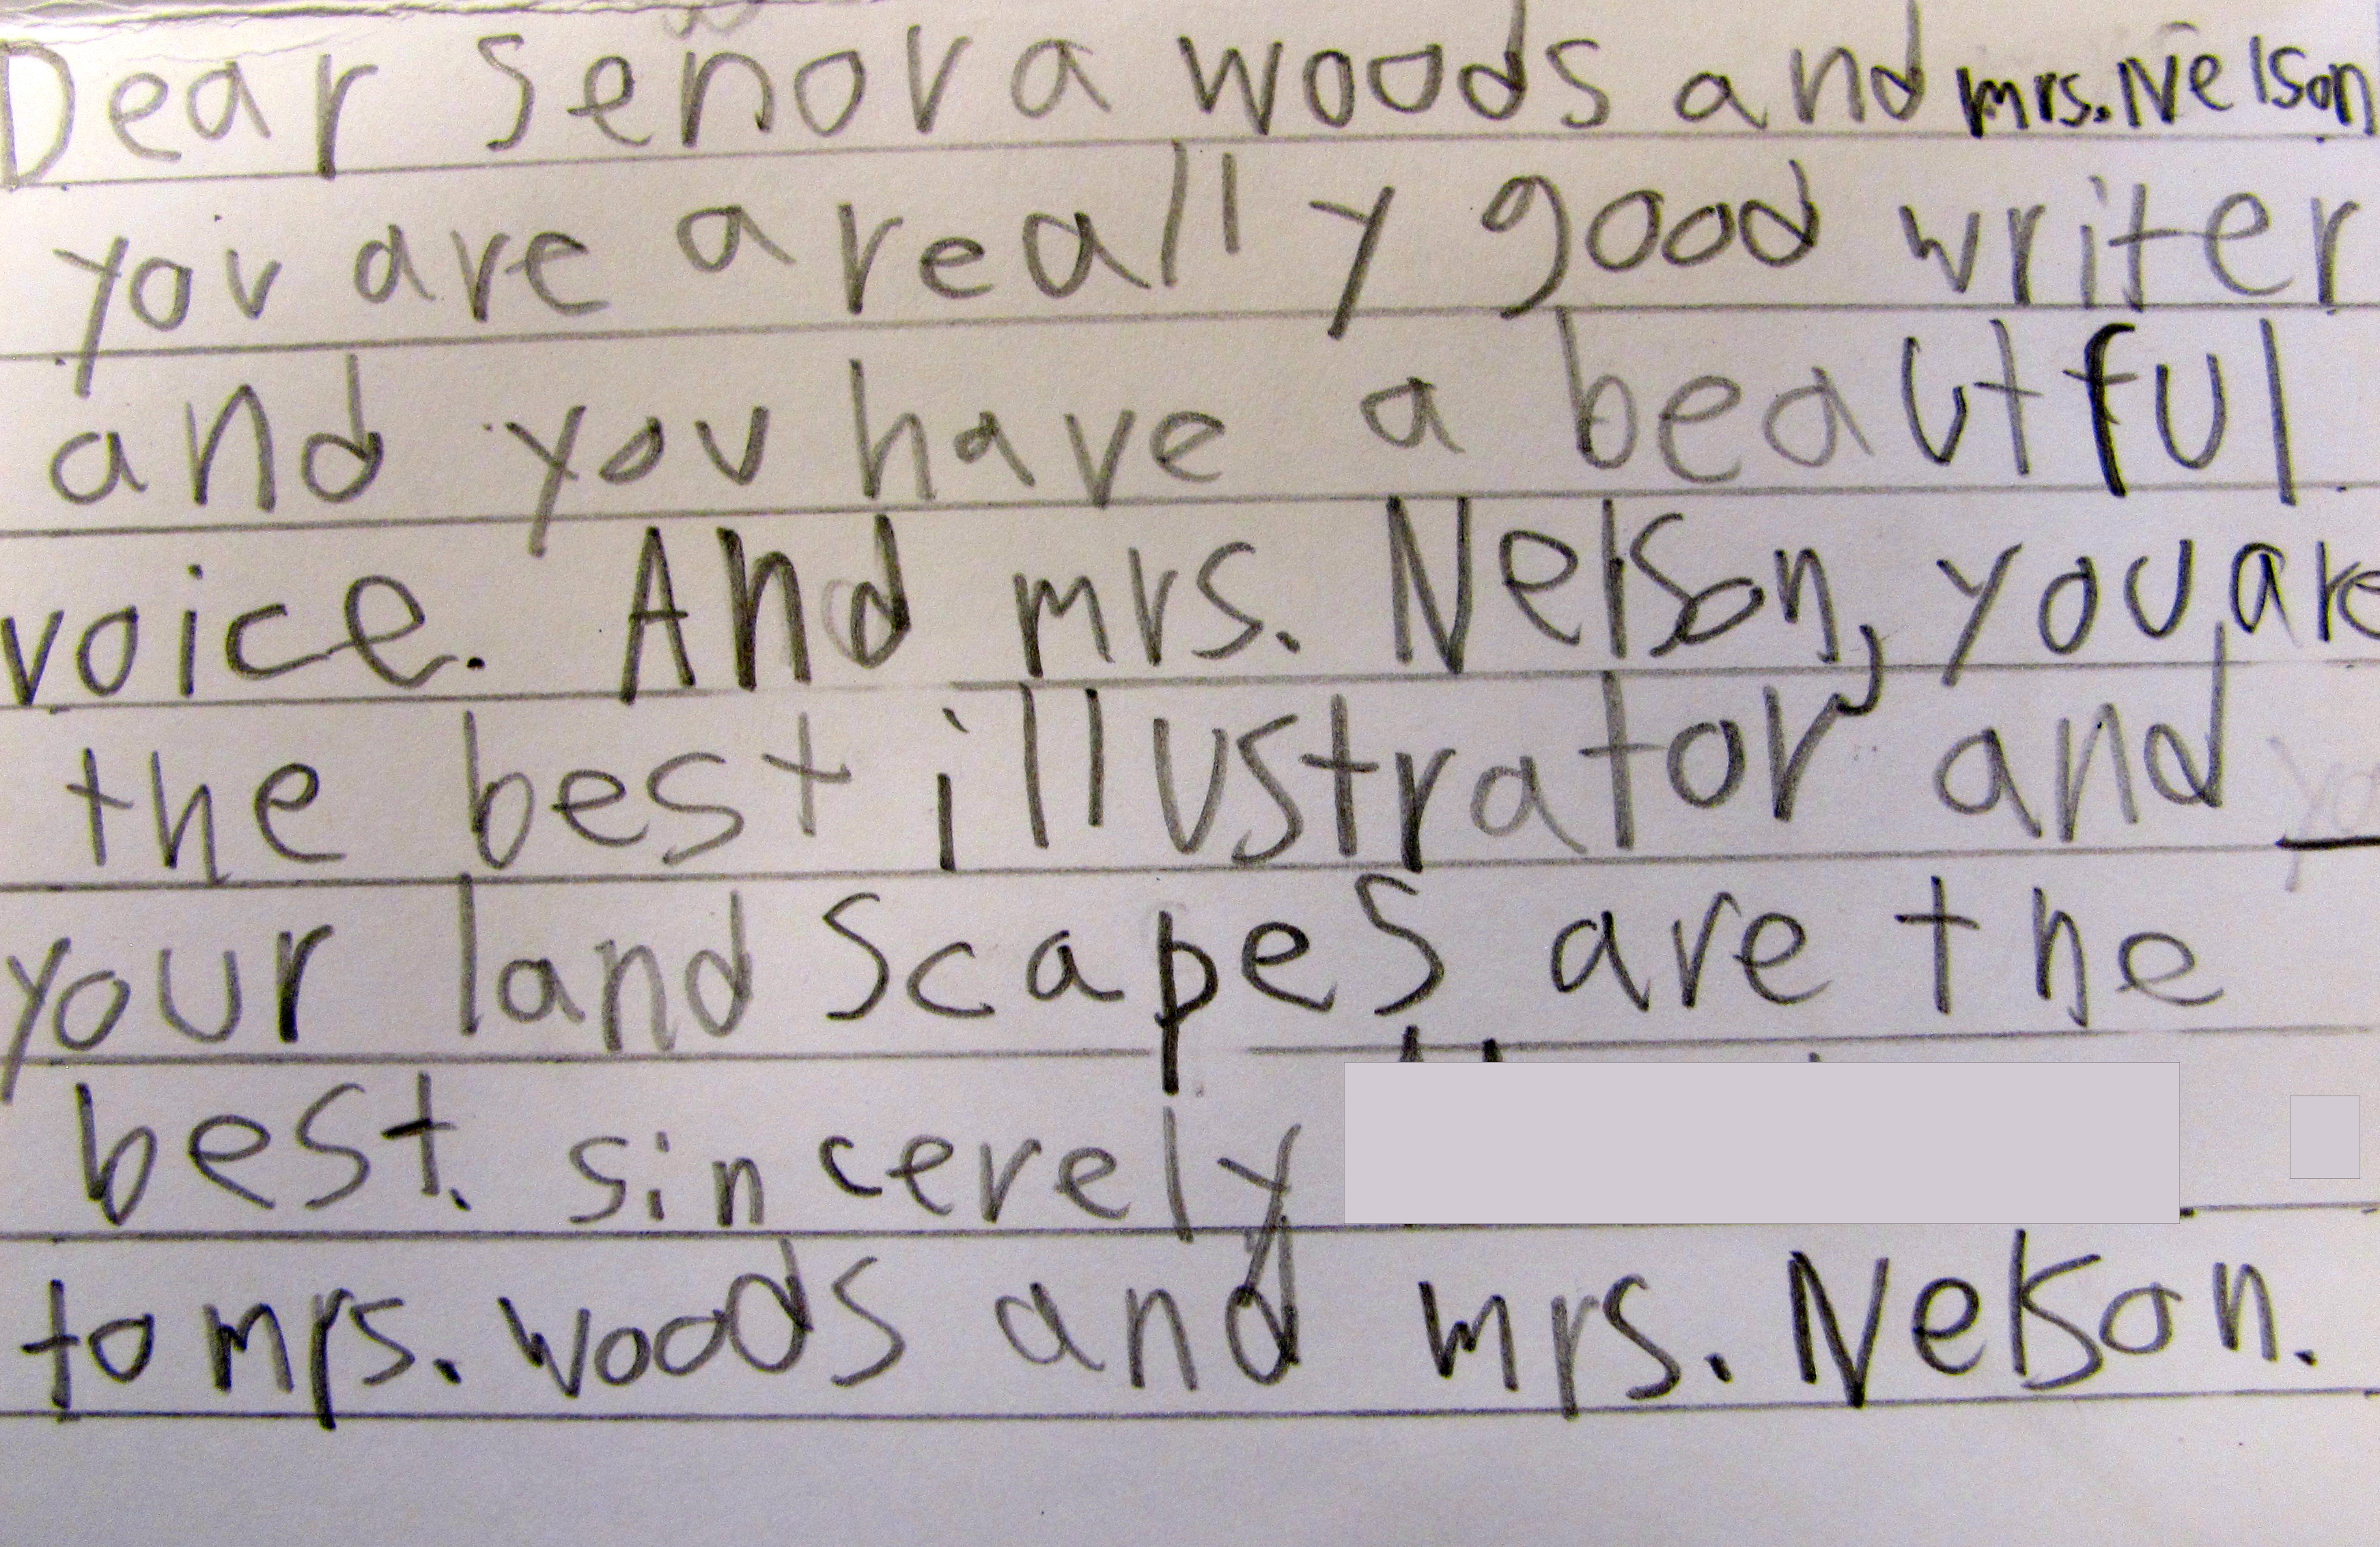 Dear Senora woods and mrs. Nelson
you are a really good writer
and you have a beautful
voice. And mrs. Nelson, you are
the best illustrator and
your landscapes are the
best. sincerely
to mrs. woods and mrs. Nelson.